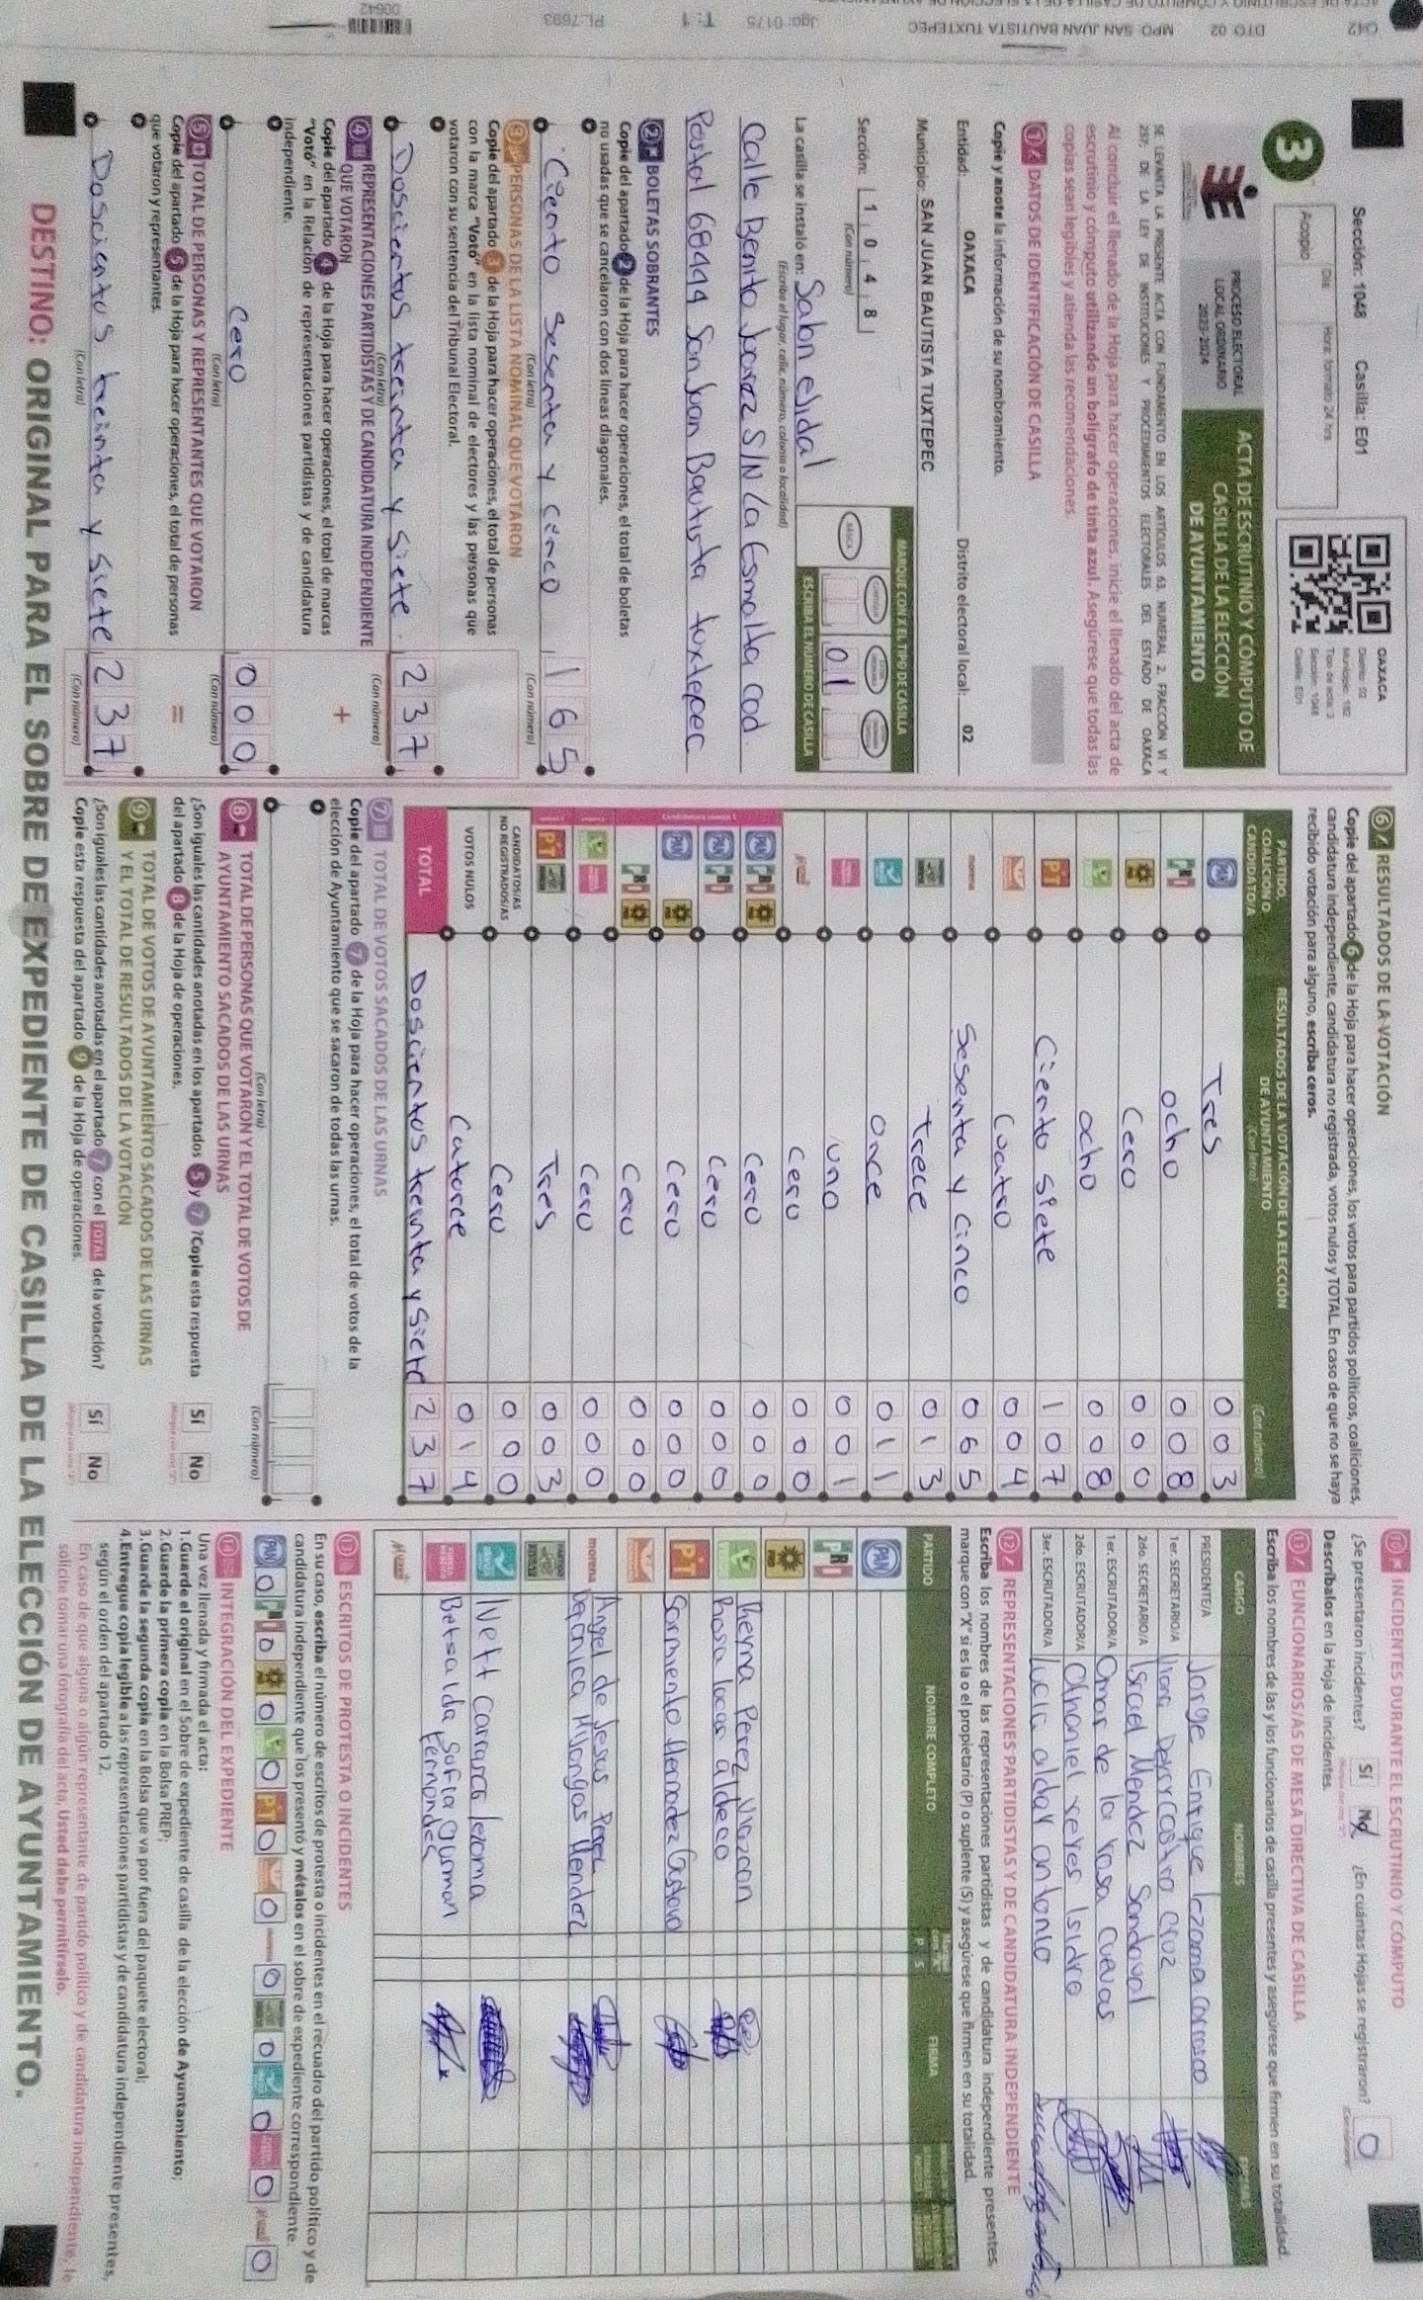 Sección: 1048 Casilla: E01
Día Hora: formato 24 hrs.
Acopio
OAXACA
Distrito: 02
Municipio: 182
Tipo de acta: 3
Sección: 1048
Casilla: E01
3
PROCESO ELECTORAL
LOCAL ORDINARIO
2023-2024
ACTA DE ESCRUTINIO Y CÓMPUTO DE
CASILLA DE LA ELECCIÓN
DE AYUNTAMIENTO
SE LEVANTA LA PRESENTE ACTA CON FUNDAMENTO EN LOS ARTÍCULOS 63, NUMERAL 2, FRACCIÓN VI Y
257, DE LA LEY DE INSTITUCIONES Y PROCEDIMIENTOS ELECTORALES DEL ESTADO DE OAXACA
Al concluir el llenado de la Hoja para hacer operaciones, inicie el llenado del acta de
escrutinio y cómputo utilizando un bolígrafo de tinta azul. Asegúrese que todas las
copias sean legibles y atienda las recomendaciones.
1 DATOS DE IDENTIFICACIÓN DE CASILLA
Copie y anote la información de su nombramiento.
Entidad: OAXACA Distrito electoral local: 02
Municipio: SAN JUAN BAUTISTA TUXTEPEC
Sección: 1 0 4 8
(Con número)
MARQUE CON X EL TIPO DE CASILLA
BÁSICA
0 1
ESCRIBA EL NÚMERO DE CASILLA
La casilla se instaló en: Salon ejidal
(Escriba el lugar, calle, número, colonia o localidad)
Calle Benito Juarez S/N La Esmalta cod.
Postal 68444 San Juan Bautista tuxtepec
2 BOLETAS SOBRANTES
Copie del apartado 2 de la Hoja para hacer operaciones, el total de boletas
no usadas que se cancelaron con dos líneas diagonales.
Ciento sesenta y cinco 1 6 5
(Con letra) (Con número)
3 PERSONAS DE LA LISTA NOMINAL QUE VOTARON
Copie del apartado 3 de la Hoja para hacer operaciones, el total de personas
con la marca "Votó" en la lista nominal de electores y las personas que
votaron con su sentencia del Tribunal Electoral.
Doscientos treinta y siete 2 3 7
(Con letra) (Con número)
4 REPRESENTACIONES PARTIDISTAS Y DE CANDIDATURA INDEPENDIENTE
QUE VOTARON
+
Copie del apartado 4 de la Hoja para hacer operaciones, el total de marcas
"Votó" en la Relación de representaciones partidistas y de candidatura
independiente.
Cero 0 0 0
(Con letra) (Con número)
5 TOTAL DE PERSONAS Y REPRESENTANTES QUE VOTARON
=
Copie del apartado 5 de la Hoja para hacer operaciones, el total de personas
que votaron y representantes.
Doscientos treinta y siete 2 3 7
(Con letra) (Con número)
6 RESULTADOS DE LA VOTACIÓN
Copie del apartado 6 de la Hoja para hacer operaciones, los votos para partidos políticos, coaliciones,
candidatura independiente, candidatura no registrada, votos nulos y TOTAL. En caso de que no se haya
recibido votación para alguno, escriba ceros.
PARTIDO, COALICIÓN O CANDIDATO/A
RESULTADOS DE LA VOTACIÓN DE LA ELECCIÓN
DE AYUNTAMIENTO
(Con letra) (Con número)
PAN Tres 0 0 3
PRI ocho 0 0 8
PRD Cero 0 0 0
ocho 0 0 8
PT Ciento siete 1 0 7
Cuatro 0 0 4
morena Sesenta y Cinco 0 6 5
Trece 0 1 3
Once 0 1 1
Uno 0 0 1
Cero 0 0 0
PAN PRI PRD Cero 0 0 0
PAN PRI Cero 0 0 0
PAN PRD Cero 0 0 0
PRI PRD Cero 0 0 0
Cero 0 0 0
PT Tres 0 0 3
CANDIDATOS/AS
NO REGISTRADOS/AS Cero 0 0 0
VOTOS NULOS Catorce 0 1 4
TOTAL Doscientos treinta y siete 2 3 7
7 TOTAL DE VOTOS SACADOS DE LAS URNAS
Copie del apartado 7 de la Hoja para hacer operaciones, el total de votos de la
elección de Ayuntamiento que se sacaron de todas las urnas.
(Con letra) (Con número)
8 TOTAL DE PERSONAS QUE VOTARON Y EL TOTAL DE VOTOS DE
AYUNTAMIENTO SACADOS DE LAS URNAS
¿Son iguales las cantidades anotadas en los apartados 5 y 7? Copie esta respuesta
del apartado 8 de la Hoja de operaciones.
Sí No
9 TOTAL DE VOTOS DE AYUNTAMIENTO SACADOS DE LAS URNAS
Y EL TOTAL DE RESULTADOS DE LA VOTACIÓN
¿Son iguales las cantidades anotadas en el apartado 7 con el TOTAL de la votación?
Copie esta respuesta del apartado 9 de la Hoja de operaciones.
Sí No
10 INCIDENTES DURANTE EL ESCRUTINIO Y CÓMPUTO
¿Se presentaron incidentes? Sí No ¿En cuántas Hojas se registraron? 0
Descríbalos en la Hoja de incidentes.
11 FUNCIONARIOS/AS DE MESA DIRECTIVA DE CASILLA
Escriba los nombres de las y los funcionarios de casilla presentes y asegúrese que firmen en su totalidad.
CARGO NOMBRES
PRESIDENTE/A Jorge Enrique lezama carrasco
1er. SECRETARIO/A castro cruz
2do. SECRETARIO/A Israel Mendez Sandoval
1er. ESCRUTADOR/A Omar de la rosa cuevas
2do. ESCRUTADOR/A Othoniel reyes Isidro
3er. ESCRUTADOR/A Lucia aldar antonio
12 REPRESENTACIONES PARTIDISTAS Y DE CANDIDATURA INDEPENDIENTE
Escriba los nombres de las representaciones partidistas y de candidatura independiente presentes,
marque con "X" si es la o el propietario (P) o suplente (S) y asegúrese que firmen en su totalidad.
PARTIDO NOMBRE COMPLETO P S FIRMA
PAN
PRI
PRD
Reyna Perez
Rosa lucas aldeco
PT Sarmiento Hernandez Gustavo
morena Angel de Jesus Perez
Mijangos Mendez
Ivett Carrasco lezama
Betsaida Sofia guzman
Fernandez
13 ESCRITOS DE PROTESTA O INCIDENTES
En su caso, escriba el número de escritos de protesta o incidentes en el recuadro del partido político y de
candidatura independiente que los presentó y métalos en el sobre de expediente correspondiente.
PAN 0 PRI 0 PRD 0 0 PT 0 0 morena 0 0 0 0 0
14 INTEGRACIÓN DEL EXPEDIENTE
Una vez llenada y firmada el acta:
1.Guarde el original en el Sobre de expediente de casilla de la elección de Ayuntamiento;
2.Guarde la primera copia en la Bolsa PREP;
3.Guarde la segunda copia en la Bolsa que va por fuera del paquete electoral;
4.Entregue copia legible a las representaciones partidistas y de candidatura independiente presentes,
según el orden del apartado 12.
En caso de que alguna o algún representante de partido político y de candidatura independiente, le
solicite tomar una fotografía del acta, Usted debe permitírselo.
DESTINO: ORIGINAL PARA EL SOBRE DE EXPEDIENTE DE CASILLA DE LA ELECCIÓN DE AYUNTAMIENTO.
DTO 02 MPO. SAN JUAN BAUTISTA TUXTEPEC Jgo: 0175 T: 1 PL: 7693
00642